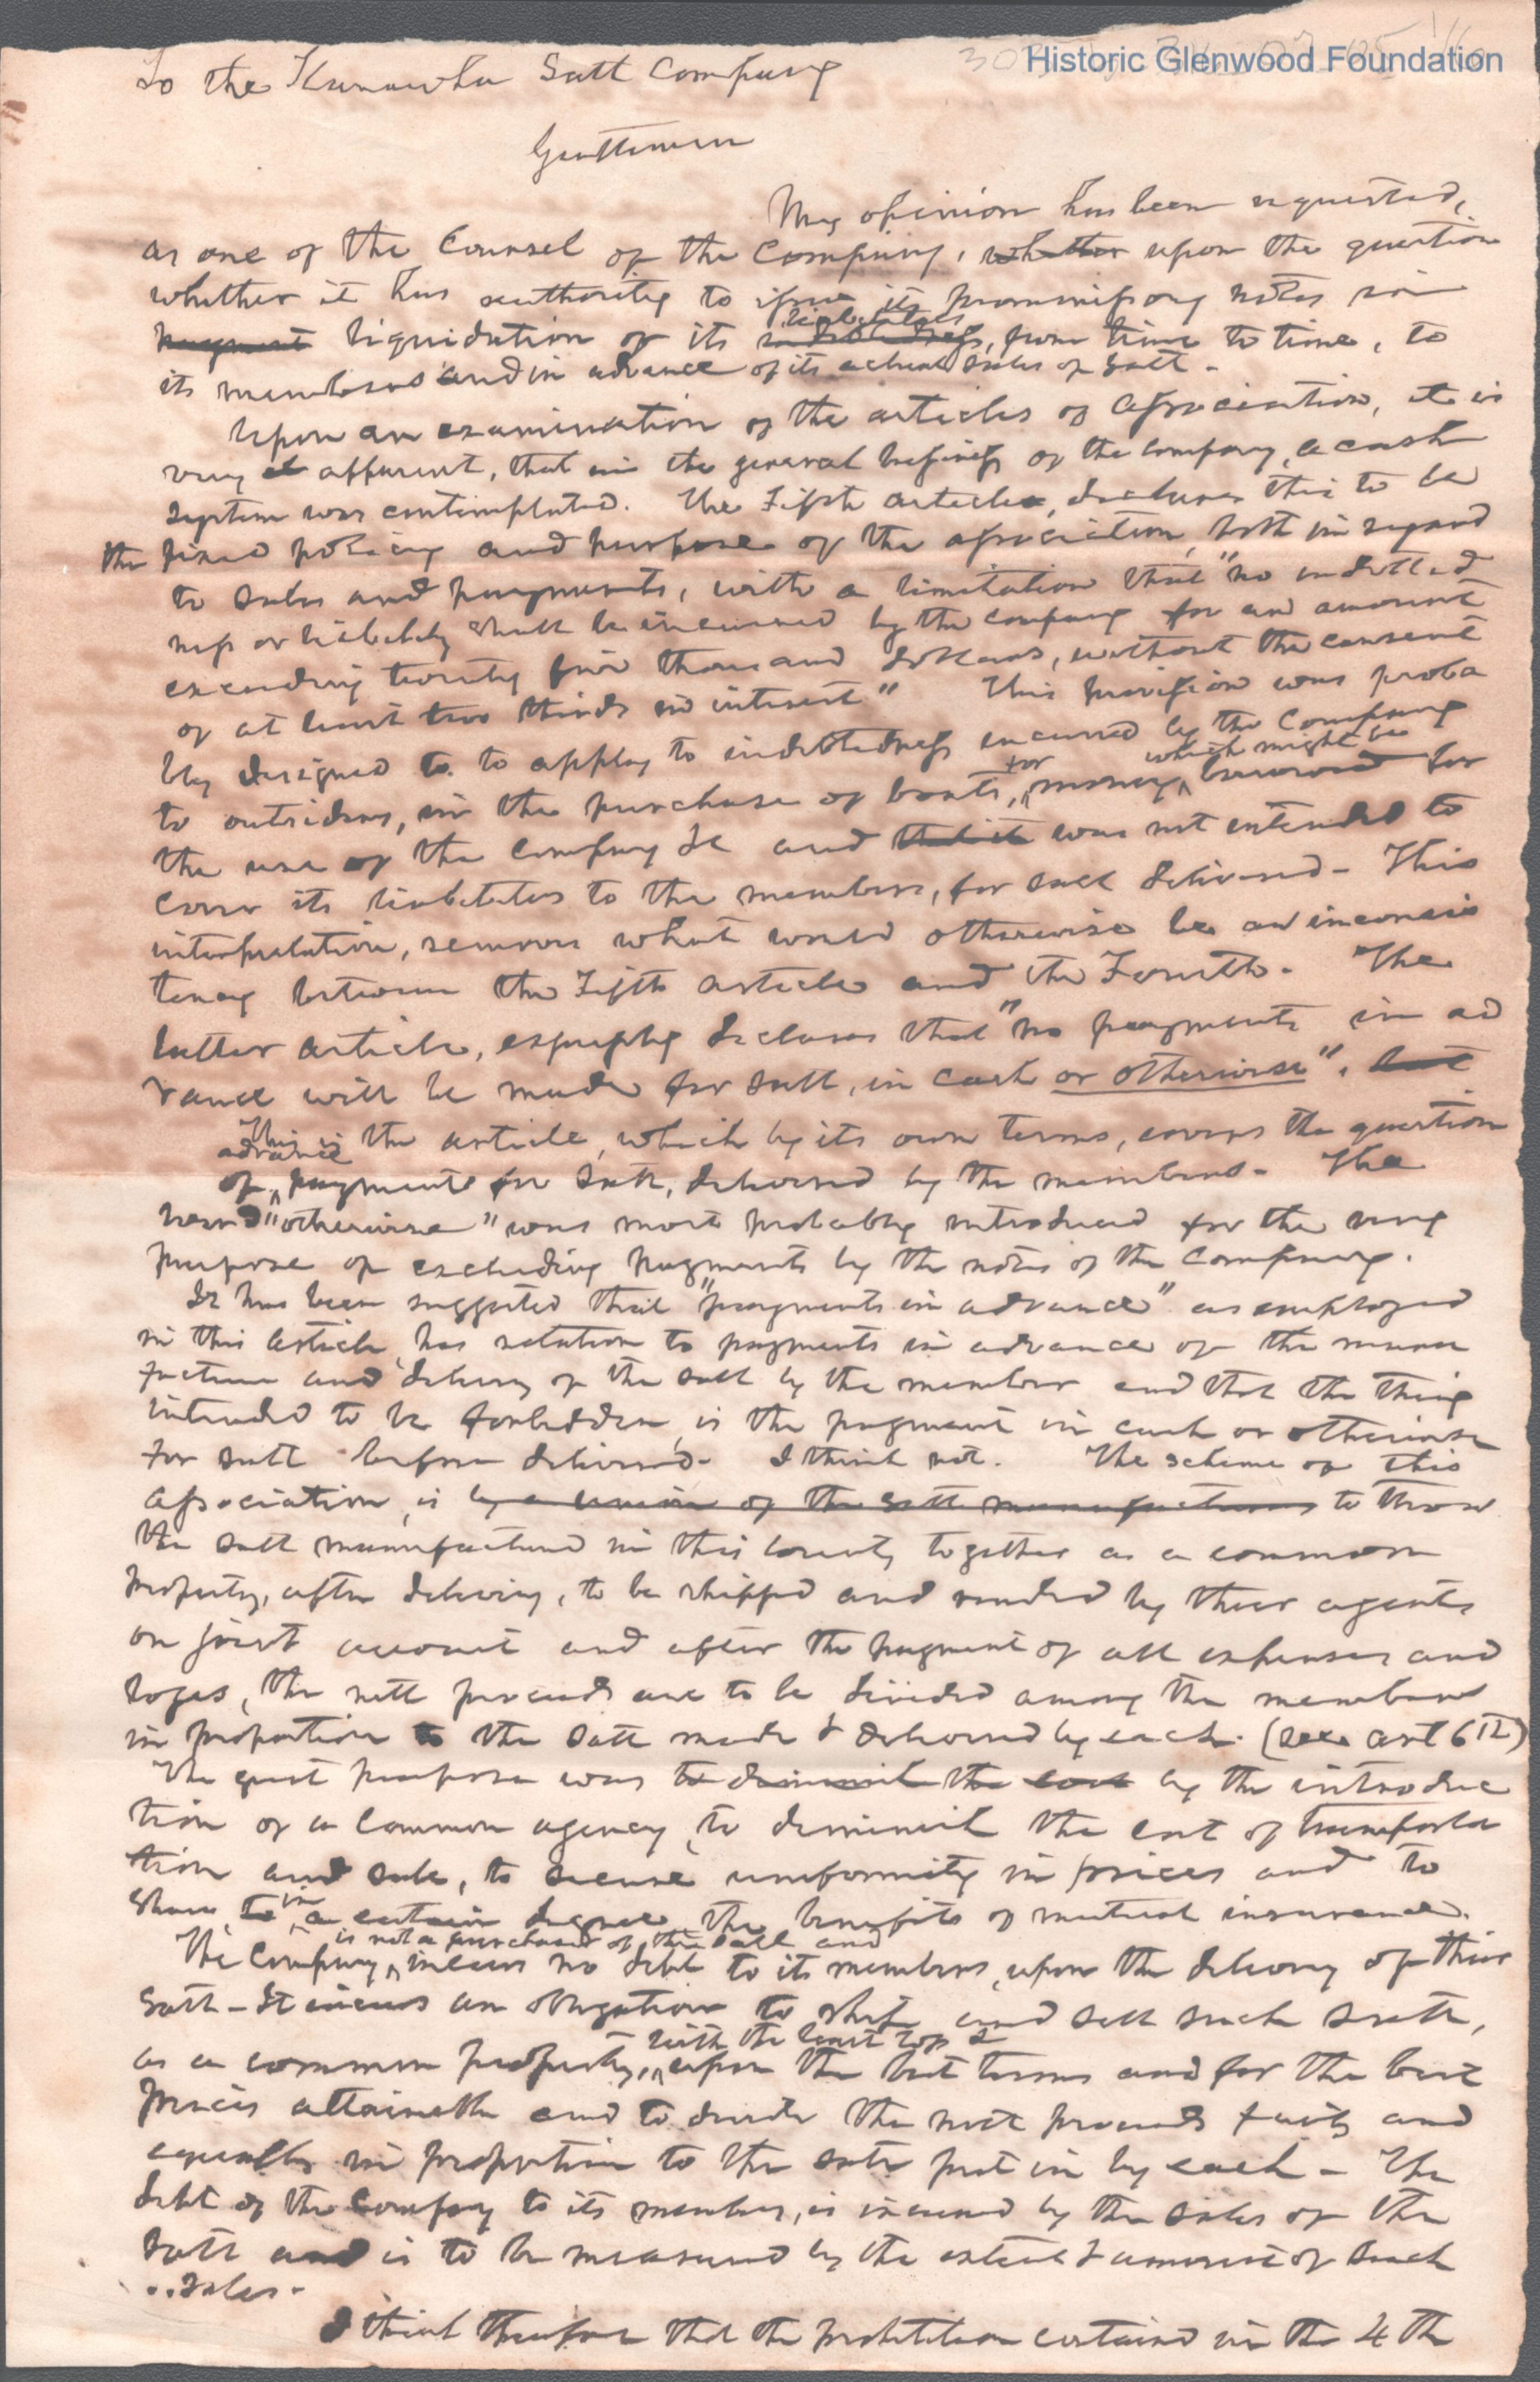 Historic Glenwood Foundation
To the Kanawha Salt Company
Gentlemen
My opinion has been requested,
as one of the Counsel of the Company, whether upon the question
whether it has authority to issue its promissory notes in
payment liquidation of its indebtedness, liabilities from time to time, to
its members and in advance of its actual sales of salt.
Upon an examination of the articles of association, it is
very apparent, that in the general business of the company, a cash
system was contemplated. The Fifth article, declares this to be
the fixed policy and purpose of the association, both in regard
to sales and payments, with a limitation that "no indebted
ness or liability shall be incurred by the company for an amount
exceeding twenty five thousand dollars, without the consent
of at least two thirds in interest" This provision was proba
bly designed to to apply to indebtedness incurred by the Company
to outsiders, in the purchase of boats, for money, which might be borrowed for
the use of the company &c and that it was not intended to
cover its liabilities to the members, for salt delivered - This
interpretation, removes what would otherwise be an inconsis
tency between the Fifth article and the Fourth - The
latter article, expressly declares that "no payments in ad
vance will be made for salt, in cash or otherwise". but
This is the article, which by its own terms, covers the question
of advance payments for salt, delivered by the members - The
word "otherwise" was most probably introduced for the very
purpose of excluding payments by the notes of the company.
It has been suggested that "payments in advance" as employed
in this article, has relation to payments in advance of the manu
facture and delivery of the salt by the member and that the thing
intended to be forbidden, is the payment in cash or otherwise
for salt before delivered - I think not. The scheme of this
association, is by a union of the salt manufacturers to throw
the salt manufactured in this county together as a common
property, after delivery, to be shipped and vended by their agents
on joint account and after the payment of all expenses and
losses, the nett proceeds are to be divided among the members
in proportion to the salt made & delivered by each. (see art 6th)
The great purpose was to diminish the cost by the introduc
tion of a common agency, to diminish the cost of transporta
tion and sale, to secure uniformity in prices and to
share, to in a certain degree, the benefits of mutual insurance.
The Company, is not a purchaser of the salt and incurs no debt to its members, upon the delivery of their
salt - It incurs an obligation to ship and sell such salt,
as a common property, with the least loss & upon the best terms and for the best
prices attainable and to divide the nett proceeds fairly and
equally in proportion to the salt put in by each - The
debt of the Company to its members, is incurred by the sales of the
salt and is to be measured by the extent & amount of such
sales -
I think therefore that the prohibition contained in the 4th